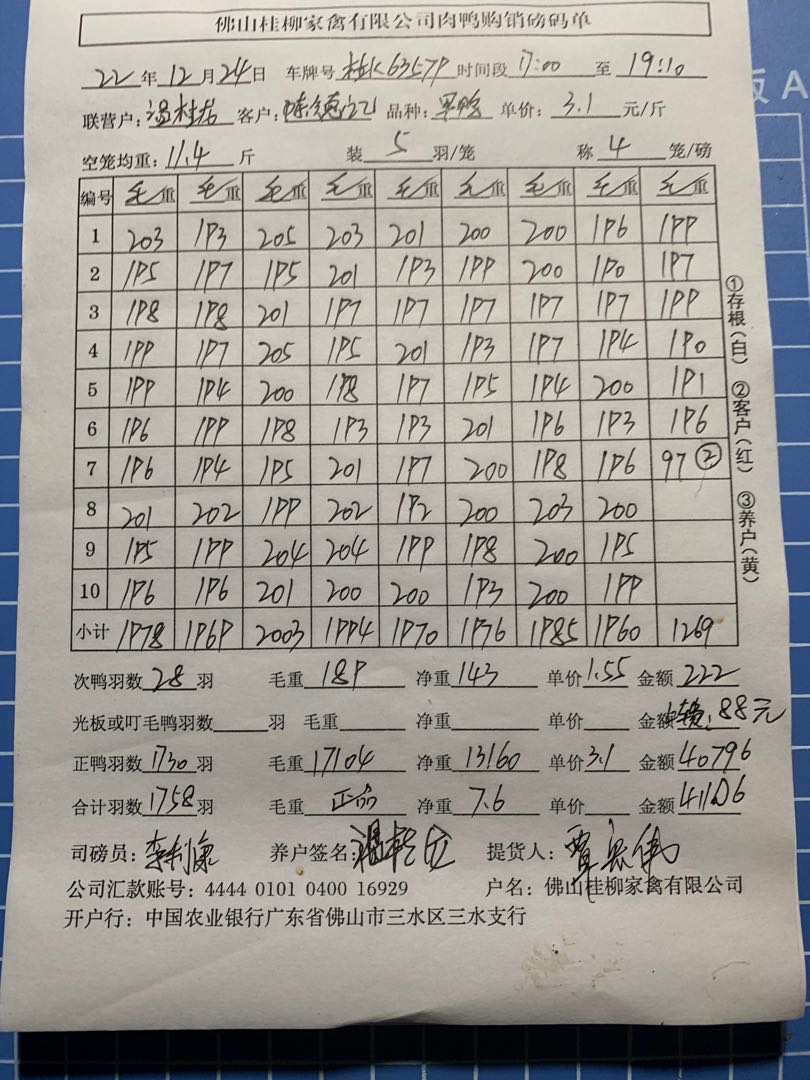 佛山桂柳家禽有限公司肉鸭购销磅码单
22年12月24日 车牌号 桂K63579 时间段 17:00 至 19:10
联营户: 客户: 品种: 单价: 3.1 元/斤
空笼均重: 11.4 斤 装 5 羽/笼 称 4 笼/磅
编号 毛重 毛重 毛重 毛重 毛重 毛重 毛重 毛重 毛重
1 203 193 205 203 201 200 200 196 199
2 195 197 195 201 193 199 200 190 197
3 198 198 201 197 197 197 197 197 199
4 199 197 205 195 201 193 197 194 190
5 199 194 200 198 197 195 194 200 191
6 196 199 198 193 193 201 196 193 196
7 196 194 195 201 197 200 198 196 97 ②
8 201 202 199 202 192 200 203 200
9 195 199 204 204 199 198 200 195
10 196 196 201 200 200 193 200 199
小计 1978 1969 2003 1994 1970 1976 1985 1960 1269
次鸭羽数 28 羽 毛重 189 净重 143 单价 1.55 金额 222
光板或叮毛鸭羽数 羽 毛重 净重 单价 金额 : 88元
正鸭羽数 1730 羽 毛重 17104 净重 13160 单价 3.1 金额 40796
合计羽数 1758 羽 毛重 正品 净重 7.6 单价 金额 41106
司磅员: 养户签名: 提货人:
公司汇款账号: 4444 0101 0400 16929 户名: 佛山桂柳家禽有限公司
开户行: 中国农业银行广东省佛山市三水区三水支行
①存根(白) ②客户(红) ③养户(黄)
板 A